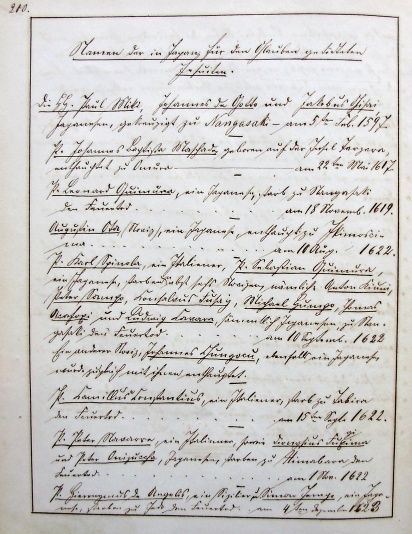 210.
Namen der in Japan für den Glauben getödteten
Jesuiten.
Die HH. Paul Miki, Johannes de Gotto und Jakobus Gisai
Japanesen, gekreuzigt zu Nangasaki – am 5ten Feb. 1597.
P. Johannes Baptista Maschado, geboren auf der Insel Terzera,
enthauptet zu Omura am 22ten Mai 1617.
P. Leonard Quimura, ein Japanese, starb zu Nangasaki
den Feuertod . . . . . am 18 Novemb. 1619.
Augustin Ota (Noviz), ein Japanese, enthauptet zu
. . . . . am 10 Aug. 1622.
P. Karl Spinola, ein Italiener, P. Sebastian Quimura,
ein Japanese, starben nebst sechs Novizen, nämlich Anton
Peter Sampo, Michael
und Ludwig Cavara, sämmtlich Japanesen, zu Nan-
gasaki den Feuertod . . . . am 10 Septemb. 1622
Ein anderer Noviz, Johannes ebenfalls ein Japanese
wurde zugleich mit ihnen enthauptet.
P. Kamillus Constantius, ein Italiener, starb zu
den Feuertod . . . . am 15ten Sept. 1622.
P. Peter Navarra, ein Italiener, sowie Dionysius
und Peter Japanesen, starben zu Ximabara den
Feuertod . . . . . am 1 Nov. 1622
P. Hieronymus de Angelis, ein Sizilier, u. Simon Jempo, ein Japa-
nese, starben zu den Feuertod . am 4ten Dezember 1623